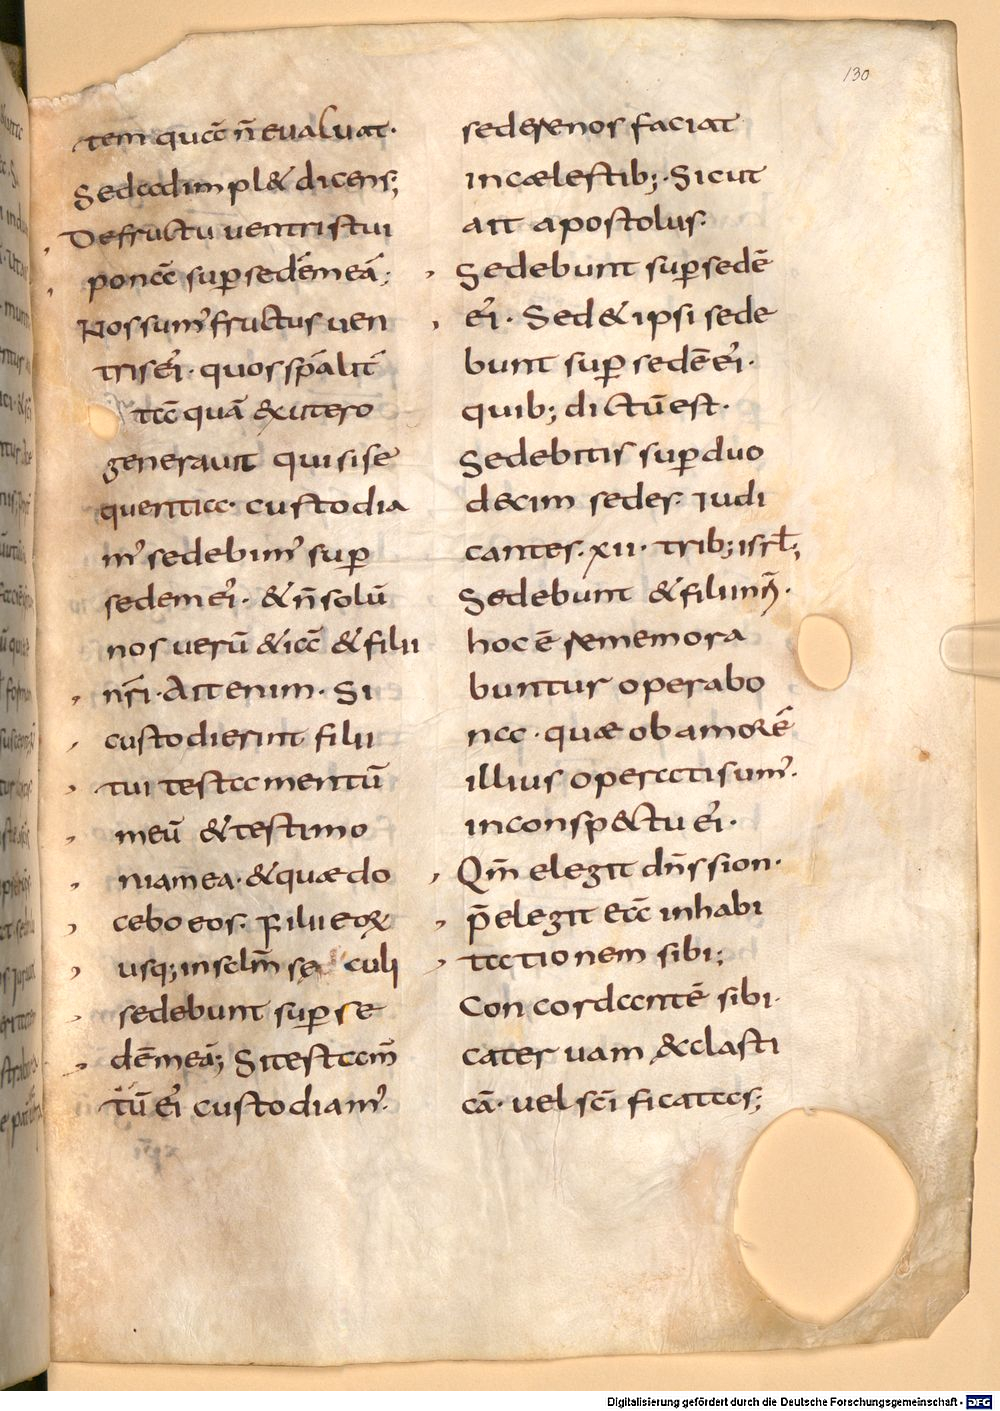 130
tem quā n̄ evaluat·
Sed adimpl& dicens;
De fructu ventris tui
ponā sup̱ sedē meā;
Nos sum᾽ fructus ven
tris ei᾽· quos sp̄alit̄
tā quā & utero
generavit qui si se
quentia· custodia
m᾽ sedebim᾽ sup̱
sedem ei᾽· & n̄ solū
nos verū &iā & filii
nr̄i· Ait enim· Si
custodierint filii
tui testamentū
meū & testimo
nia mea· & quæ do
cebo eos. Filii eoꝝ
usq; in sclm̄ sę culi
sedebunt sup̱ se
dē meā; Si testam̄
tū ei᾽ custodiam᾽·
sedere nos faciat
in cælestib;· Sicut
ait apostolus·
Sedebunt sup̱ sedē
ei᾽· Sed & ipsi sede
bunt sup̱ sedē ei᾽·
quib; dictū est·
Sedebitis sup̱ duo
decim sedes· iudi
cantes· xii· trib; isrl̄;
Sedebunt & filii nr̄i·
hoc ē rememora
buntur opera bo
na· quæ ob amorē
illius operati sum᾽·
in conspectu ei᾽·
Qm̄ elegit dn̄s sion·
p̄elegit eā in habi
tationem sibi;
Concordantē sibi·
catervam ecclasti
cā· vel sc̄ificatas;
Digitalisierung gefördert durch die Deutsche Forschungsgemeinschaft - DFG